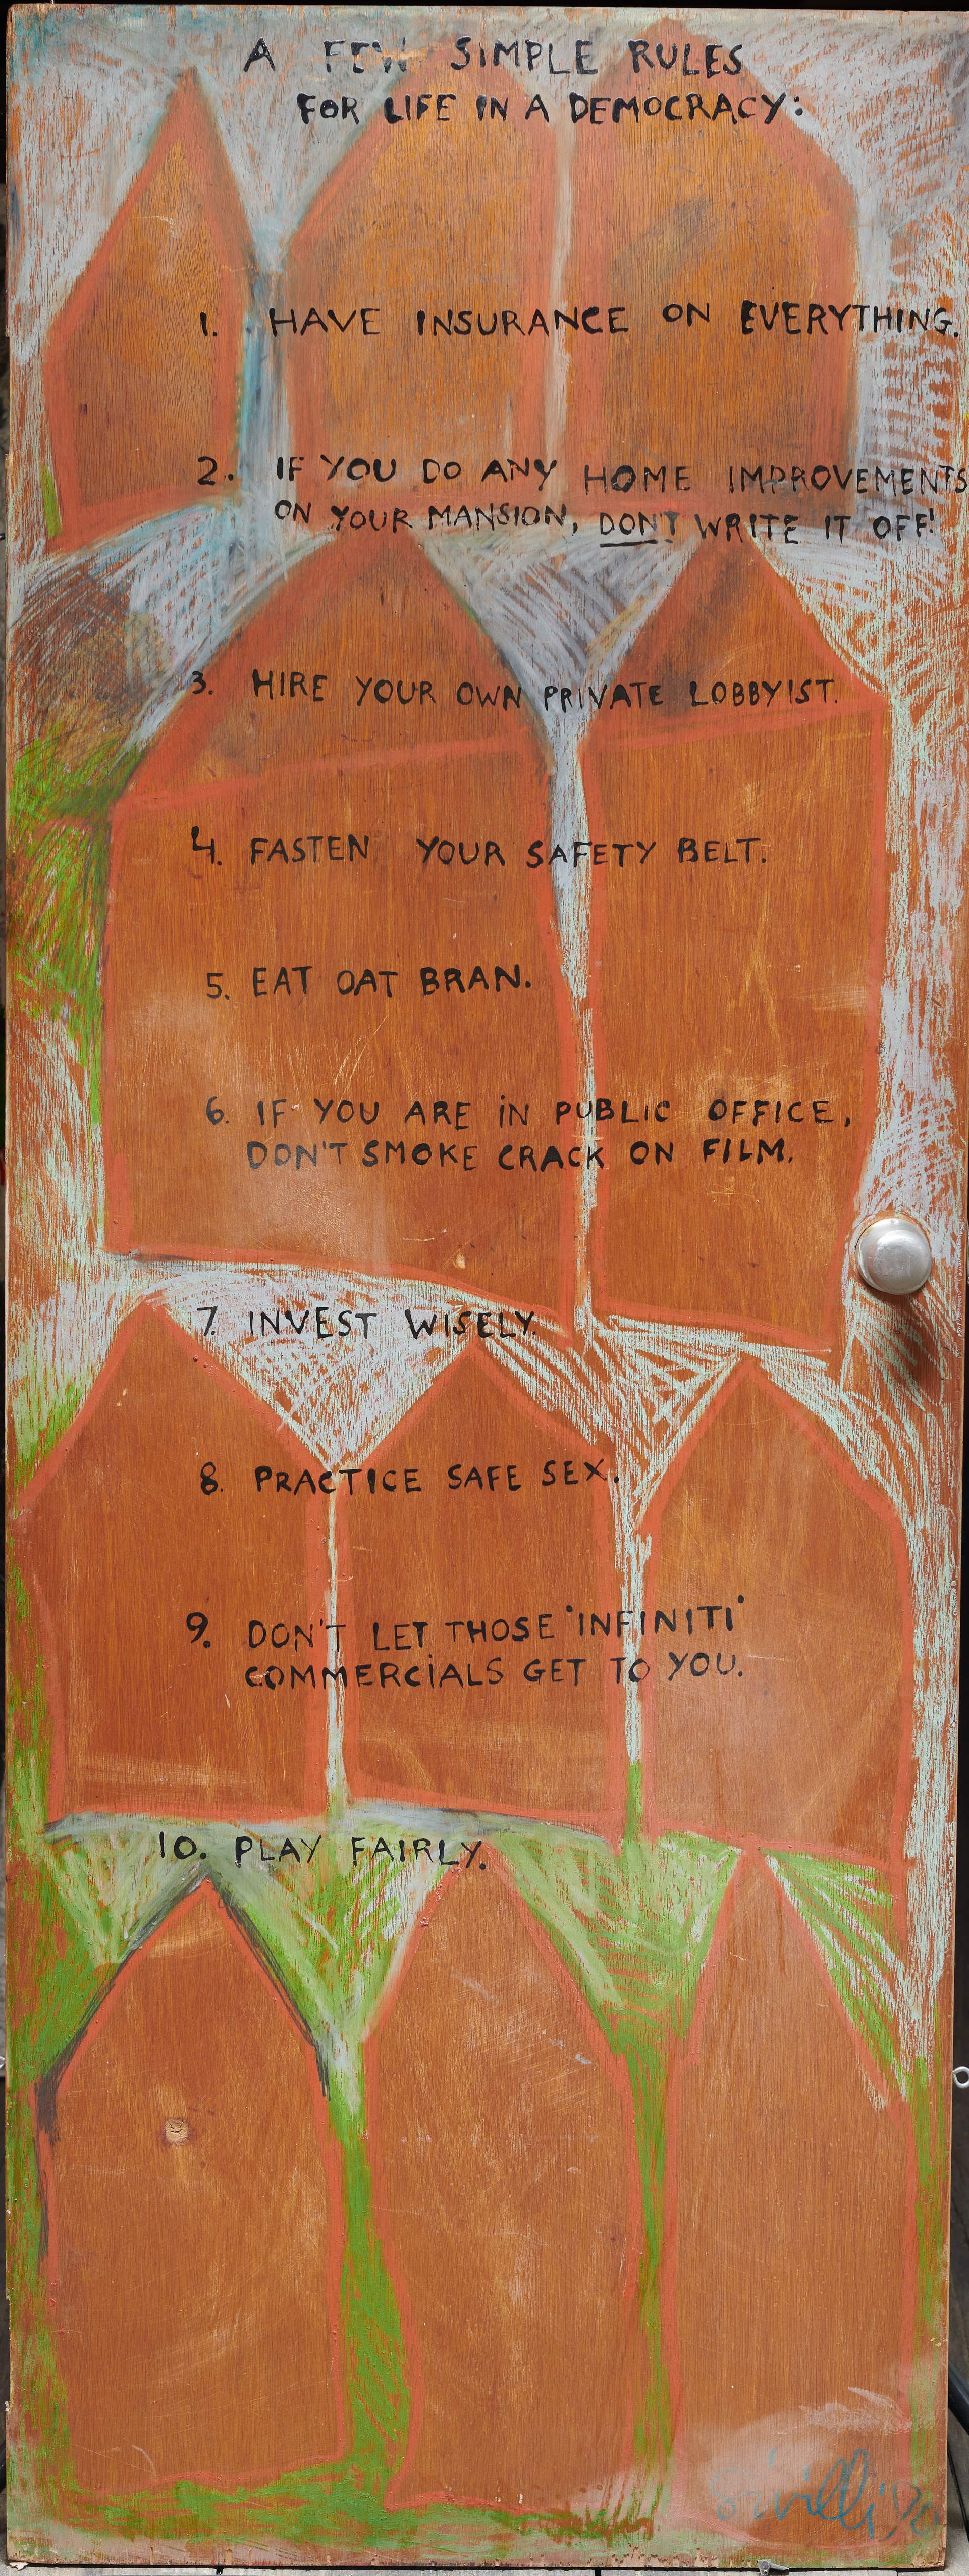 A FEW SIMPLE RULES
FOR LIFE IN A DEMOCRACY:
1. HAVE INSURANCE ON EVERYTHING.
2. IF YOU DO ANY HOME IMPROVEMENTS
ON YOUR MANSION, DON'T WRITE IT OFF!
3. HIRE YOUR OWN PRIVATE LOBBYIST.
4. FASTEN YOUR SAFETY BELT.
5. EAT OAT BRAN.
6. IF YOU ARE IN PUBLIC OFFICE,
DON'T SMOKE CRACK ON FILM.
7. INVEST WISELY.
8. PRACTICE SAFE SEX.
9. DON'T LET THOSE "INFINITI"
COMMERCIALS GET TO YOU.
10. PLAY FAIRLY.